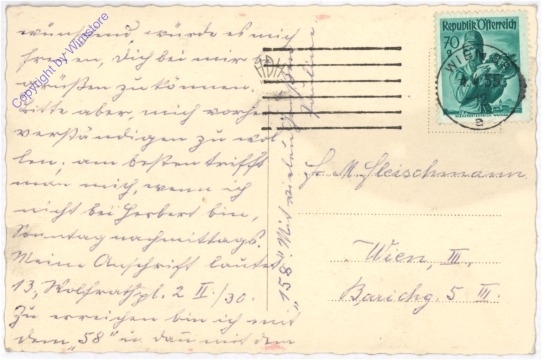 wünschend, würde es mich
freuen, Dich bei mir
grüßen zu können.
Bitte aber, mich vorher
verständigen zu wol-
len; am besten trifft
man mich, wenn ich
nicht bei Herbert bin,
Sonntag nachmittags.
Meine Anschrift lautet
13, Wolfrathpl. 2 II./30.
Zu erreichen bin ich mit
dem "58" u. dann mit dem
"158" Mit
Republik Österreich
70
WIEN
a
M. Fleischmann
Wien, III,
Barichg. 5 III.
Copyright by Winstore